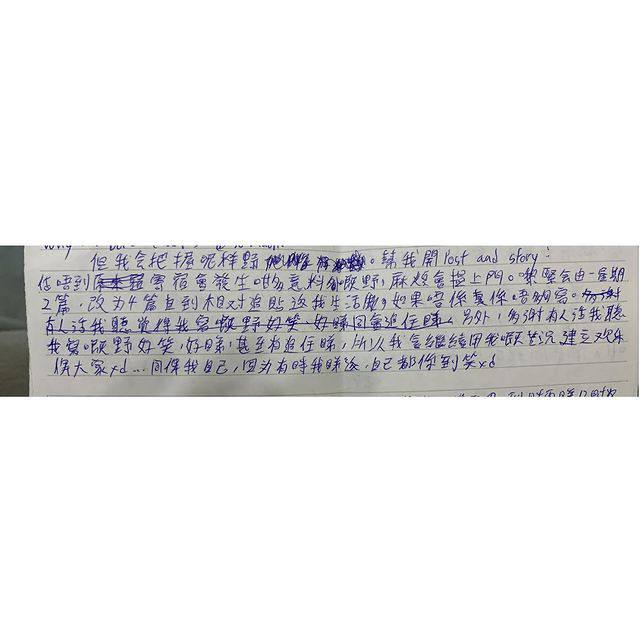 但我会把握呢样野。請我開Post and story!
估唔到寄宿會發生咁多意料外嘅野,麻煩會搵上門。嚟緊会由一星期
2篇,改为4篇直到相对追貼返我生活,如果唔係真係唔夠寫。多謝
有人話我聽覺得我寫嘅野好笑、好睇同會追住睇。另外,多謝有人話我聽
我寫嘅野好笑,好睇,甚至有追住睇,所以我會繼續用我嘅苦況建立欢乐
俾大家xd...同俾我自己,因为有時我睇返,自己都俾到笑xd